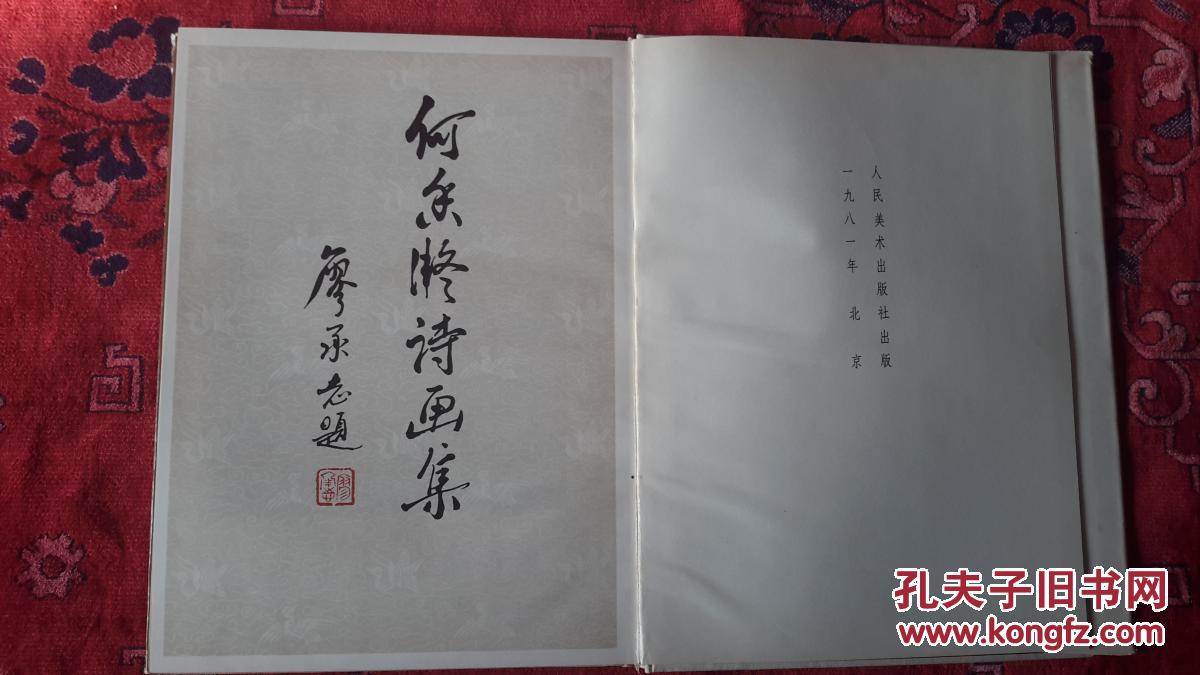 何香凝诗画集
廖承志題
人民美术出版社出版
一九八一年 北京
孔夫子旧书网
www.kongfz.com